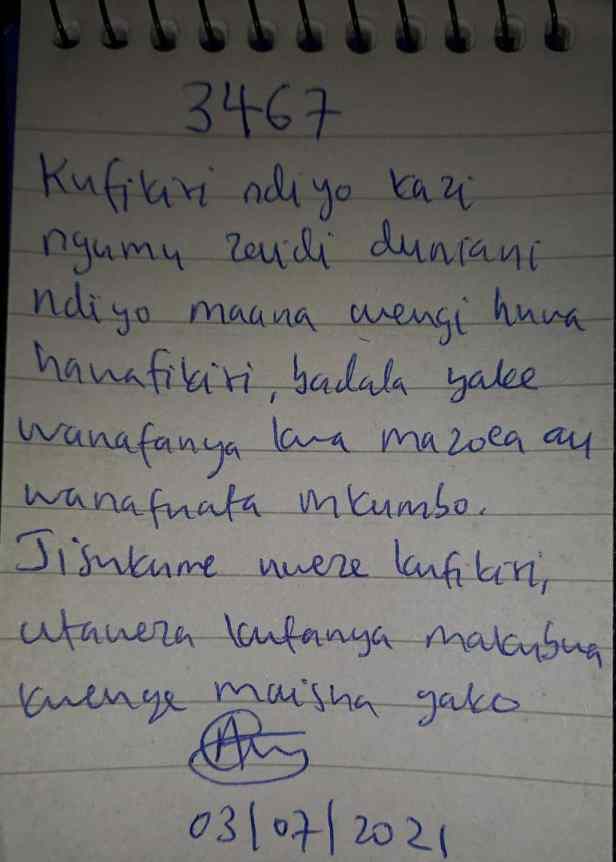 3467
Kufikiri ndiyo kazi
ngumu zaidi duniani
ndiyo maana wengi huwa
hawafikiri, badala yake
wanafanya kwa mazoea au
wanafuata mkumbo.
Jisukume uweze kufikiri,
utaweza kufanya makubwa
kwenye maisha yako
03/07/2021